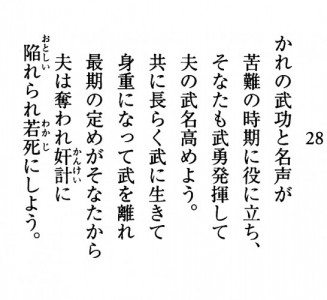 28
かれの武功と名声が
苦難の時期に役に立ち、
そなたも武勇発揮して
夫の武名高めよう。
共に長らく武に生きて
身重になって武を離れ
最期の定めがそなたから
夫は奪われ奸計に
陥れられ若死にしよう。
かんけい
おとしい
わかじ